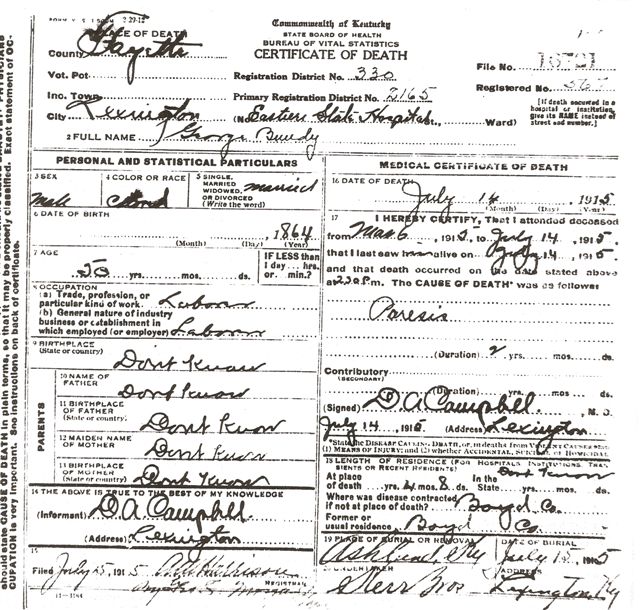 Commonwealth of Kentucky
STATE BOARD OF HEALTH
BUREAU OF VITAL STATISTICS
CERTIFICATE OF DEATH
PLACE OF DEATH
County Fayette
Vot. Pct.
Inc. Town
City Lexington
Registration District No. 330
Primary Registration District No. 2165
(No. Eastern State Hospital Ward)
File No.
Registered No.
[If death occurred in a
hospital or institution,
give its NAME instead of
street and number.]
2 FULL NAME George Bundy
PERSONAL AND STATISTICAL PARTICULARS
3 SEX
Male
4 COLOR OR RACE
Colored
5 SINGLE,
MARRIED
WIDOWED,
OR DIVORCED
(Write the word)
Married
6 DATE OF BIRTH
1864
(Month) (Day) (Year)
7 AGE
yrs. mos. ds.
IF LESS than
1 day... hrs.
or min.?
8 OCCUPATION
(a) Trade, profession, or
particular kind of work Laborer
(b) General nature of industry
business or establishment in
which employed (or employer) Laborer
9 BIRTHPLACE
(State or country) Dont Know
PARENTS
10 NAME OF
FATHER Dont Know
11 BIRTHPLACE
OF FATHER
(State or country) Dont Know
12 MAIDEN NAME
OF MOTHER Dont Know
13 BIRTHPLACE
OF MOTHER
(State or country) Dont Know
14 THE ABOVE IS TRUE TO THE BEST OF MY KNOWLEDGE
(Informant) D A Campbell
(Address) Lexington
15
Filed July 25, 1915
REGISTRAR
11-1184
MEDICAL CERTIFICATE OF DEATH
16 DATE OF DEATH
July 14 1915
(Month) (Day) (Year)
17 I HEREBY CERTIFY, That I attended deceased
from Mar 6, 1915, to July 14, 1915.
that I last saw him alive on July 14, 1915
and that death occurred on the date stated above
at 230 P.m. The CAUSE OF DEATH* was as follows
Paresis
(Duration) 2 yrs. mos. ds.
Contributory
(SECONDARY)
(Duration) yrs. mos. ds.
(Signed) D A Campbell, M. D.
July 14, 1915 (Address) Lexington
*State the DISEASE CAUSING DEATH, or, in deaths from VIOLENT CAUSES state
(1) MEANS OF INJURY; and (2) whether ACCIDENTAL, SUICIDAL or HOMICIDAL
18 LENGTH OF RESIDENCE (FOR HOSPITALS, INSTITUTIONS, TRANSIENTS OR RECENT RESIDENTS)
At place
of death yrs. 4 mos. 8 ds.
In the
State Dont Know yrs. mos. ds.
Where was disease contracted
if not at place of death? Boyd Co.
Former or
usual residence Boyd Co.
19 PLACE OF BURIAL OR REMOVAL
Ashland Ky
DATE OF BURIAL
July 15 1915
20 UNDERTAKER
Kerr Bros
ADDRESS
Lexington Ky
should state CAUSE OF DEATH in plain terms, so that it may be properly classified. Exact statement of OC-
CUPATION is very important. See instructions on back of certificate.